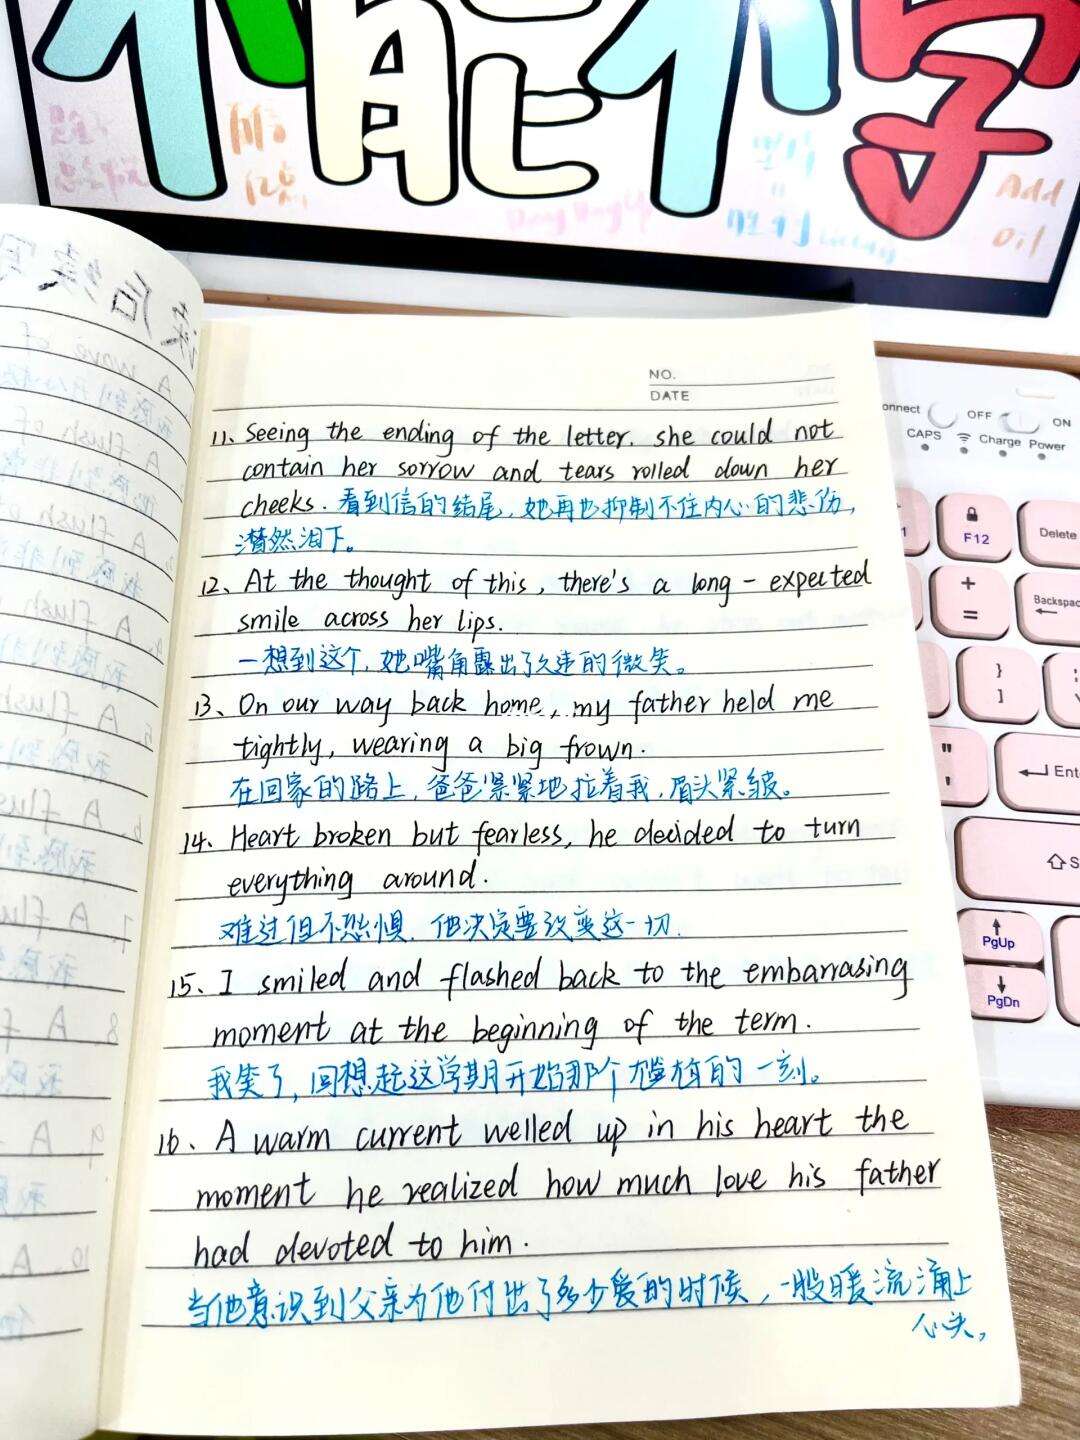 不能不学
Add
Oil
Day Day Up
读后续写
A wave of
A flush of
A flush of
NO.
DATE
11、Seeing the ending of the letter. she could not
contain her sorrow and tears rolled down her
cheeks. 看到信的结尾，她再也抑制不住内心的悲伤，
潸然泪下。
12、At the thought of this, there's a long-expected
smile across her lips.
一想到这个，她嘴角露出了久违的微笑。
13、On our way back home, my father held me
tightly, wearing a big frown.
在回家的路上，爸爸紧紧地拉着我，眉头紧皱。
14、Heart broken but fearless, he decided to turn
everything around.
难过但不恐惧，他决定要改变这一切.
15、I smiled and flashed back to the embarrasing
moment at the beginning of the term.
我笑了，回想起这学期开始那个尴尬的一刻。
16、A warm current welled up in his heart the
moment he realized how much love his father
had devoted to him.
当他意识到父亲为他付出了多少爱的时候，一股暖流涌上
心头。
onnect OFF ON
CAPS Charge Power
F12 Delete
+
=
Backspac
}
]
"
'
Ent
PgUp
PgDn